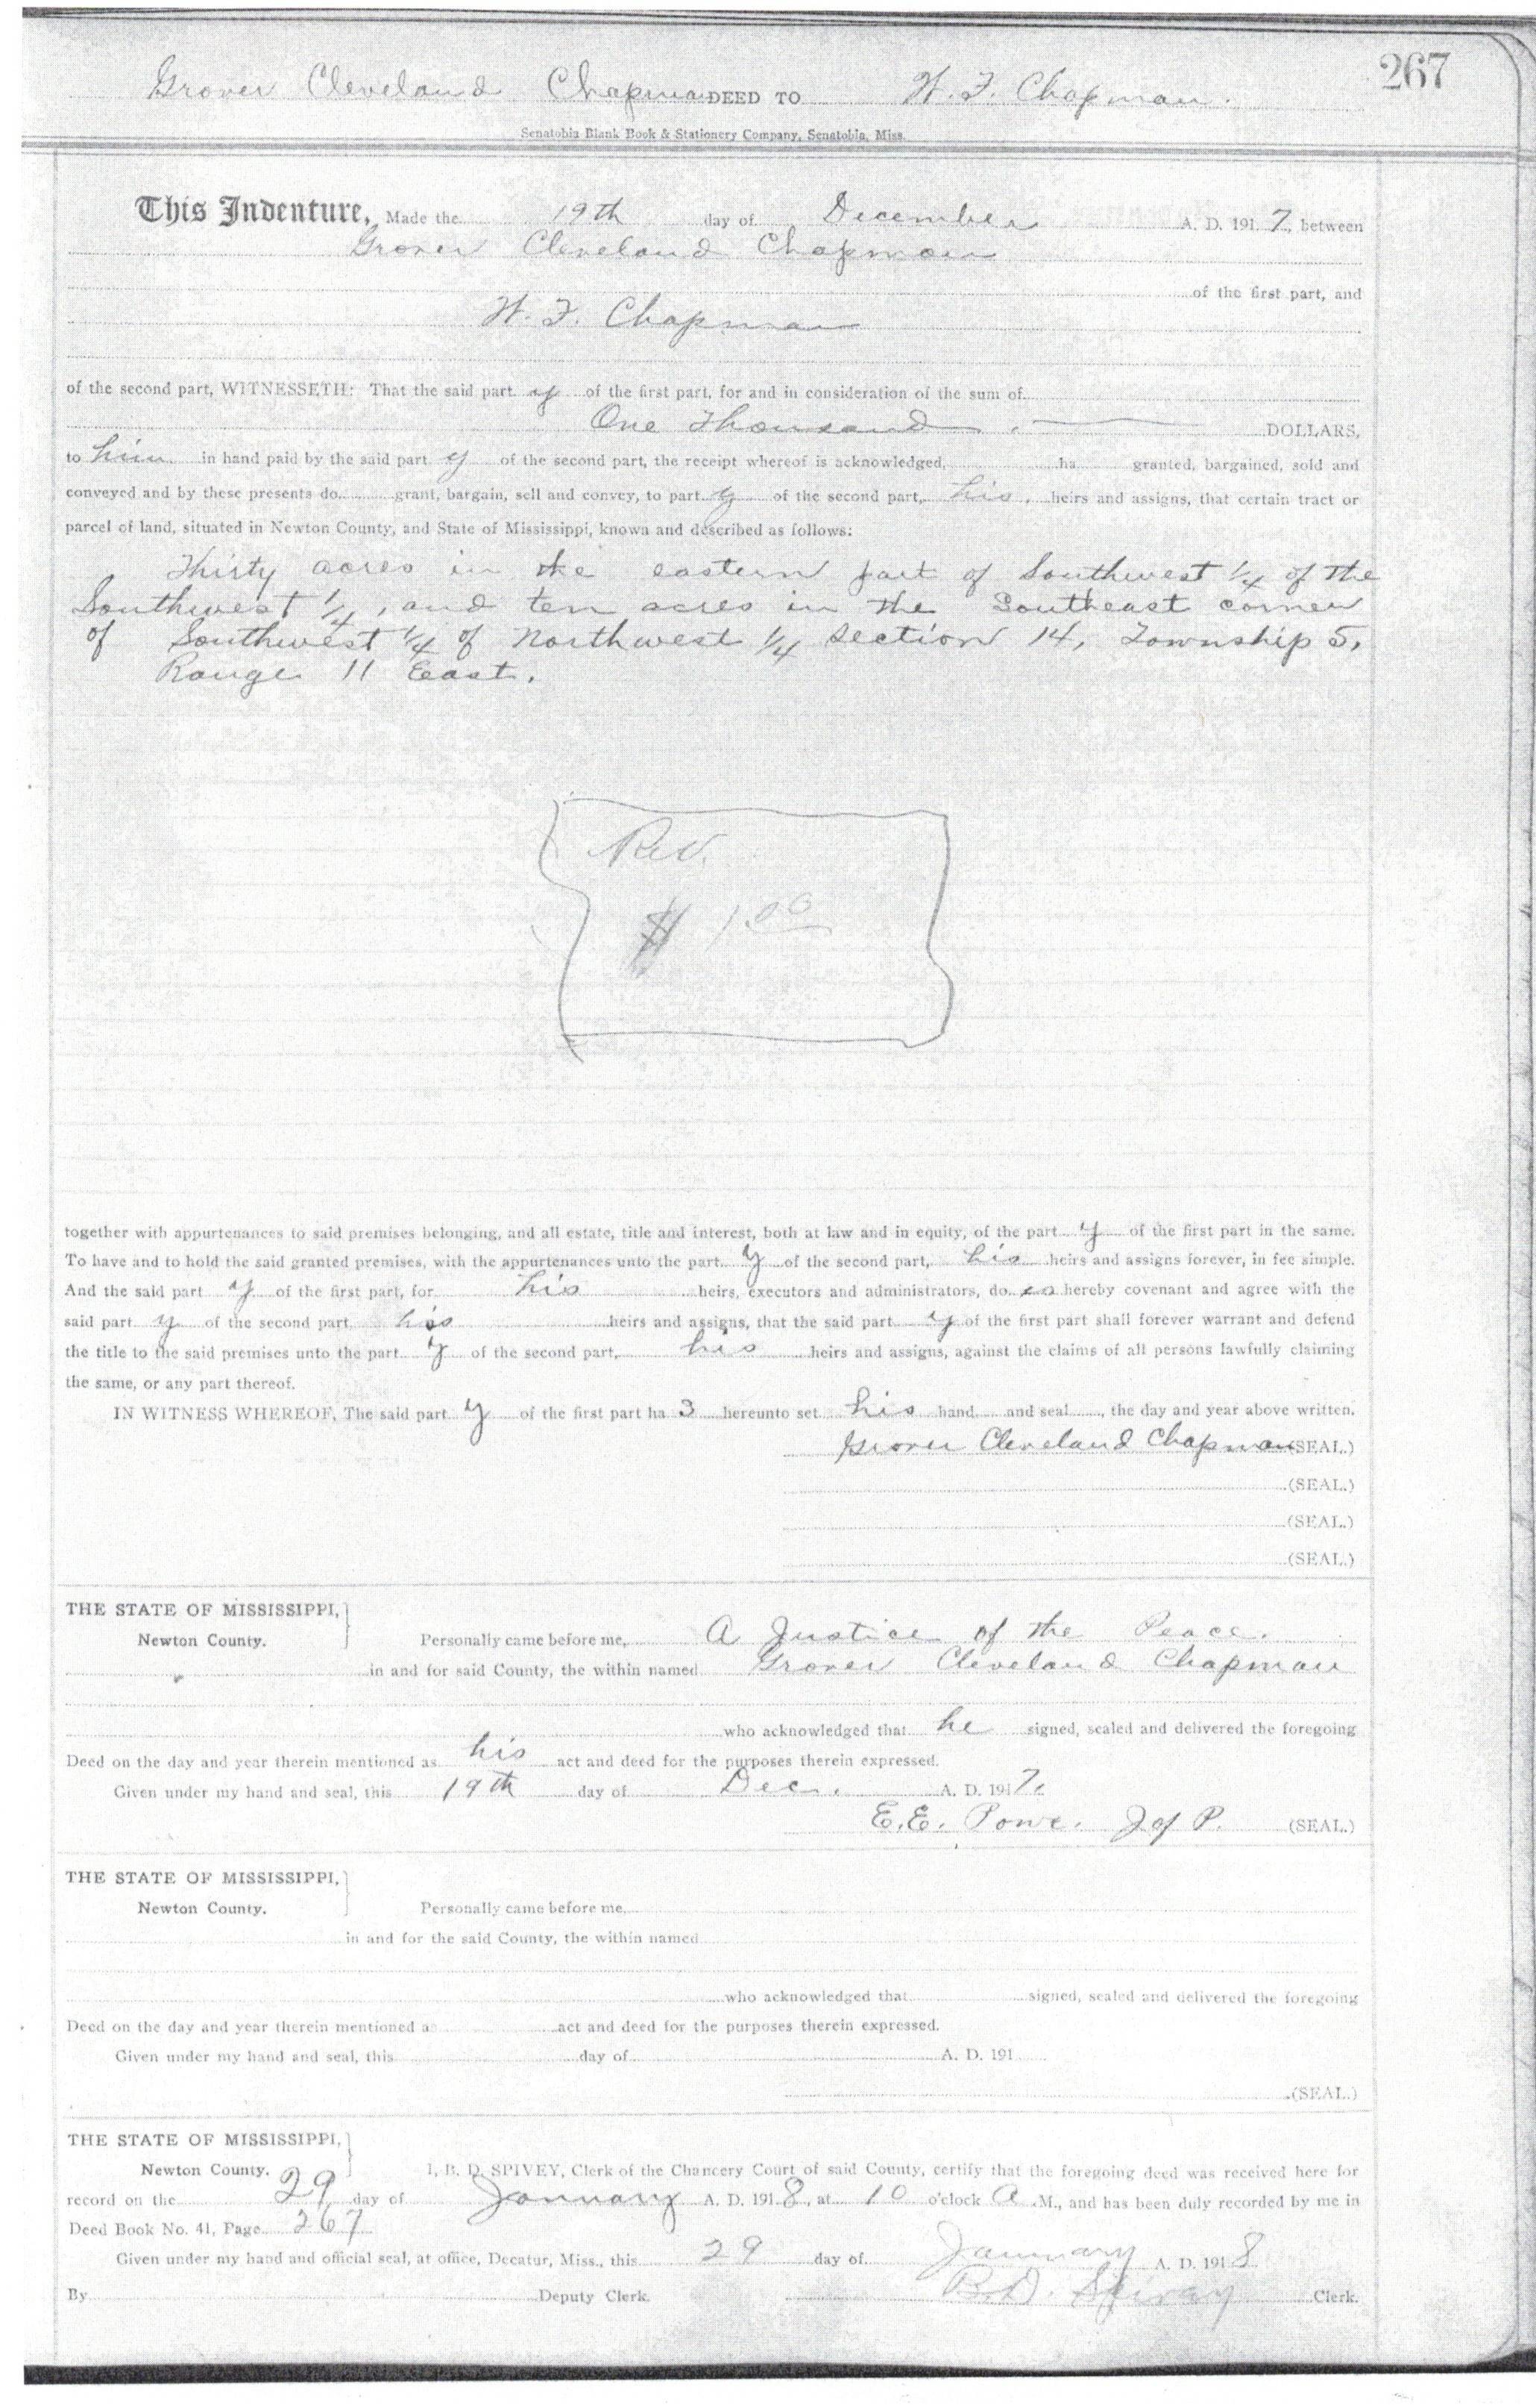 267
Grover Cleveland Chapman DEED TO W. F. Chapman.
Senatobia Blank Book & Stationery Company, Senatobia, Miss.
This Indenture, Made the 19th day of December A. D. 1917, between
Grover Cleveland Chapman
of the first part, and
W. F. Chapman
of the second part, WITNESSETH: That the said party of the first part, for and in consideration of the sum of
One Thousand DOLLARS,
to him in hand paid by the said party of the second part, the receipt whereof is acknowledged, ha granted, bargained, sold and
conveyed and by these presents do grant, bargain, sell and convey, to party of the second part, his heirs and assigns, that certain tract or
parcel of land, situated in Newton County, and State of Mississippi, known and described as follows:
Thirty acres in the eastern part of Southwest 1/4 of the
Southwest 1/4, and ten acres in the Southeast corner
of Southwest 1/4 of Northwest 1/4 Section 14, Township 5,
Range 11 East.
Rev.
$ 1.00
together with appurtenances to said premises belonging, and all estate, title and interest, both at law and in equity, of the party of the first part in the same.
To have and to hold the said granted premises, with the appurtenances unto the party of the second part, his heirs and assigns forever, in fee simple.
And the said party of the first part, for his heirs, executors and administrators, do es hereby covenant and agree with the
said party of the second part his heirs and assigns, that the said party of the first part shall forever warrant and defend
the title to the said premises unto the party of the second part, his heirs and assigns, against the claims of all persons lawfully claiming
the same, or any part thereof.
IN WITNESS WHEREOF, The said party of the first part has hereunto set his hand and seal, the day and year above written.
Grover Cleveland Chapman (SEAL.)
(SEAL.)
(SEAL.)
(SEAL.)
THE STATE OF MISSISSIPPI,
Newton County. Personally came before me, A Justice of the Peace.
in and for said County, the within named Grover Cleveland Chapman
who acknowledged that he signed, sealed and delivered the foregoing
Deed on the day and year therein mentioned as his act and deed for the purposes therein expressed.
Given under my hand and seal, this 19th day of Dec. A. D. 1917.
E. E. Powe. J of P. (SEAL.)
THE STATE OF MISSISSIPPI,
Newton County. Personally came before me
in and for the said County, the within named
who acknowledged that signed, sealed and delivered the foregoing
Deed on the day and year therein mentioned as act and deed for the purposes therein expressed.
Given under my hand and seal, this day of A. D. 191
(SEAL.)
THE STATE OF MISSISSIPPI,
Newton County. I, B. D. SPIVEY, Clerk of the Chancery Court of said County, certify that the foregoing deed was received here for
record on the 29 day of January A. D. 1918, at 10 o'clock A .M., and has been duly recorded by me in
Deed Book No. 41, Page 267
Given under my hand and official seal, at office, Decatur, Miss., this 29 day of January A. D. 1918
By Deputy Clerk. B. D. Spivey Clerk.